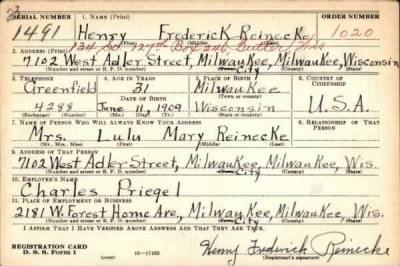 SERIAL NUMBER 1. NAME (Print) ORDER NUMBER
1491 Henry Frederick Reinecke 1020
(First) (Middle) (Last)
134 So 127th Box 346 Butler, Wis
2. ADDRESS (Print)
7102 West Adler Street, Milwaukee, Milwaukee, Wisconsin
City
(Number and street or R. F. D. number) (Town) (County) (State)
3. TELEPHONE 4. AGE IN YEARS 5. PLACE OF BIRTH 6. COUNTRY OF CITIZENSHIP
Greenfield 31 Milwaukee
(Town or county)
DATE OF BIRTH
4288 June 11, 1909 Wisconsin U.S.A.
(Exchange) (Number) (Mo.) (Day) (Yr.) (State or country)
7. NAME OF PERSON WHO WILL ALWAYS KNOW YOUR ADDRESS 8. RELATIONSHIP OF THAT PERSON
Mrs. Lulu Mary Reinecke
(Mr., Mrs., Miss) (First) (Middle) (Last)
9. ADDRESS OF THAT PERSON
7102 West Adler Street, Milwaukee, Milwaukee, Wis.
City
(Number and street or R. F. D. number) (Town) (County) (State)
10. EMPLOYER'S NAME
Charles Priegel
11. PLACE OF EMPLOYMENT OR BUSINESS
2181 W. Forest Home Ave, Milwaukee, Milwaukee, Wis.
City
(Number and street or R. F. D. number) (Town) (County) (State)
I AFFIRM THAT I HAVE VERIFIED ABOVE ANSWERS AND THAT THEY ARE TRUE.
REGISTRATION CARD
D. S. S. Form 1 (over) 16—17105
Henry Frederick Reinecke
(Registrant's signature)